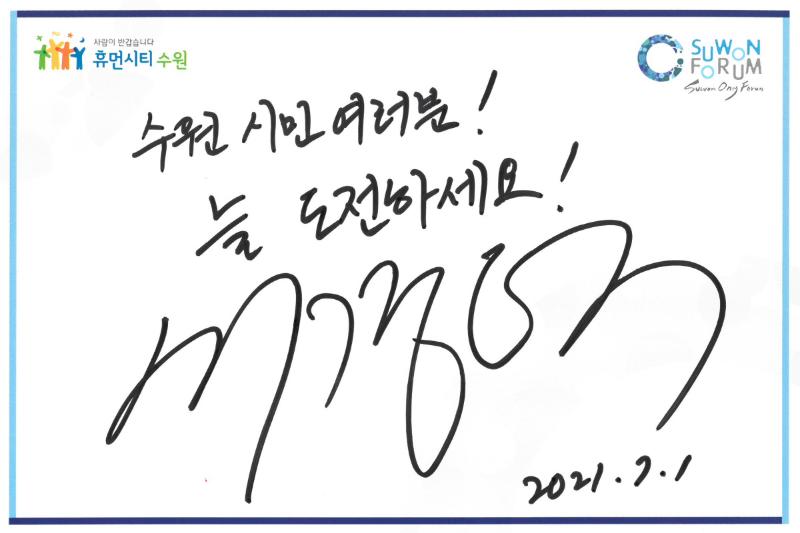 사람이 반갑습니다
휴먼시티 수원
SUWON
FORUM
수원 시민 여러분!
늘 도전하세요!
2021.7.1